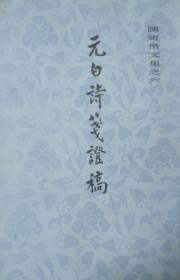 陳寅恪文集之六
元白詩箋證稿